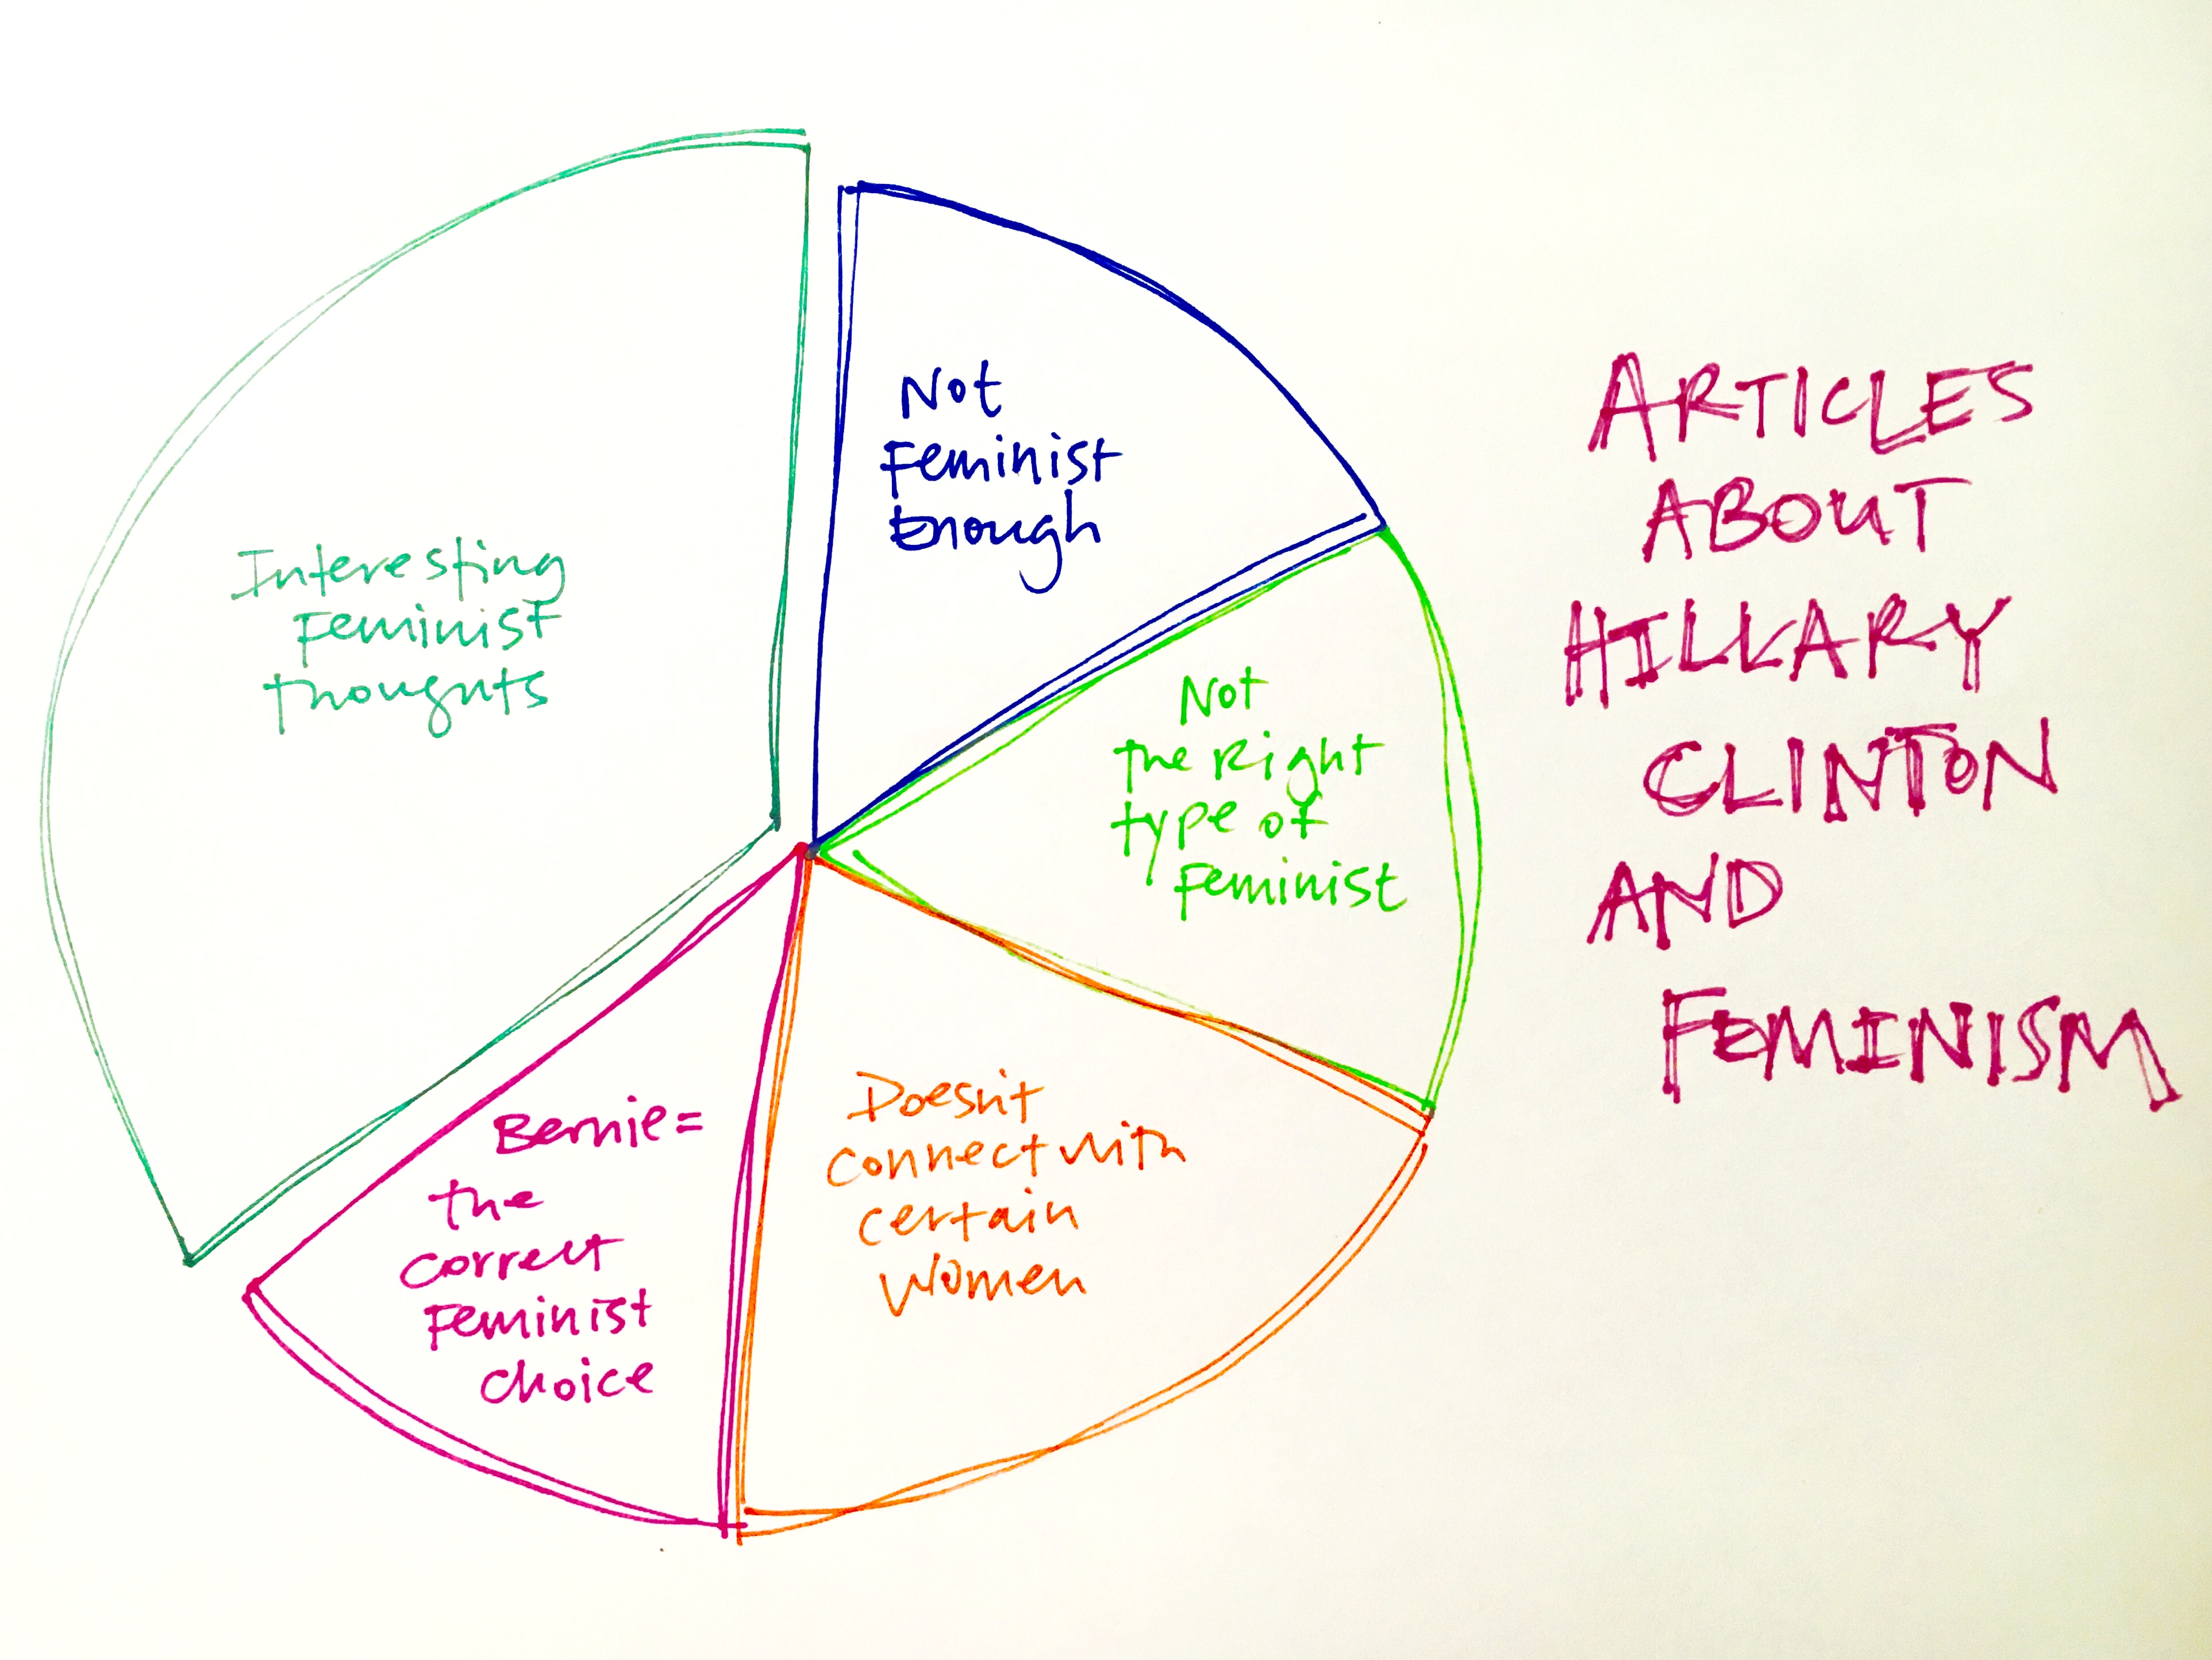 Interesting
Feminist
thoughts
Not
Feminist
Enough
Not
the Right
type of
Feminist
Doesn't
connect with
certain
women
Bernie =
the
correct
Feminist
choice
ARTICLES
ABOUT
HILLARY
CLINTON
AND
FEMINISM